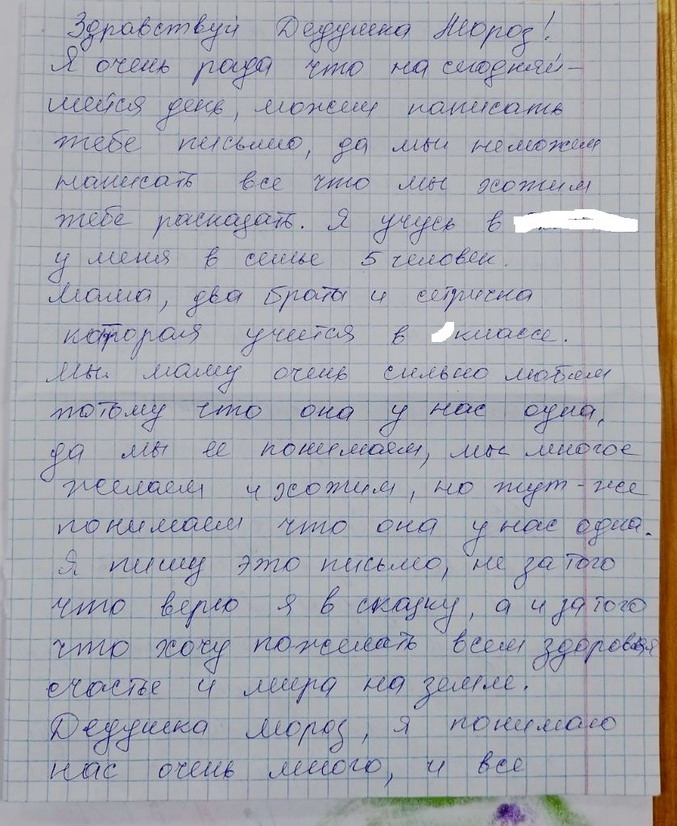 Здравствуй Дедушка Мороз!
Я очень рада что на сегодняй-
шейся день, можем написать
тебе письмо, да мы неможем
написать все что мы хотим
тебе расказать. Я учусь в
у меня в семье 5 человек.
Мама, два брата и сетричка
которая учится в классе.
Мы маму очень сильно любим
потому что она у нас одна,
да мы ее понимаем, мы многое
желаем и хотим, но тут-же
понимаем что она у нас одна.
Я пишу это письмо, не за того
что верю я в сказку, а и за того
что хочу пожелать всем здоровья
счастье и мира на земле.
Дедушка Мороз, я понимаю
нас очень много, и все